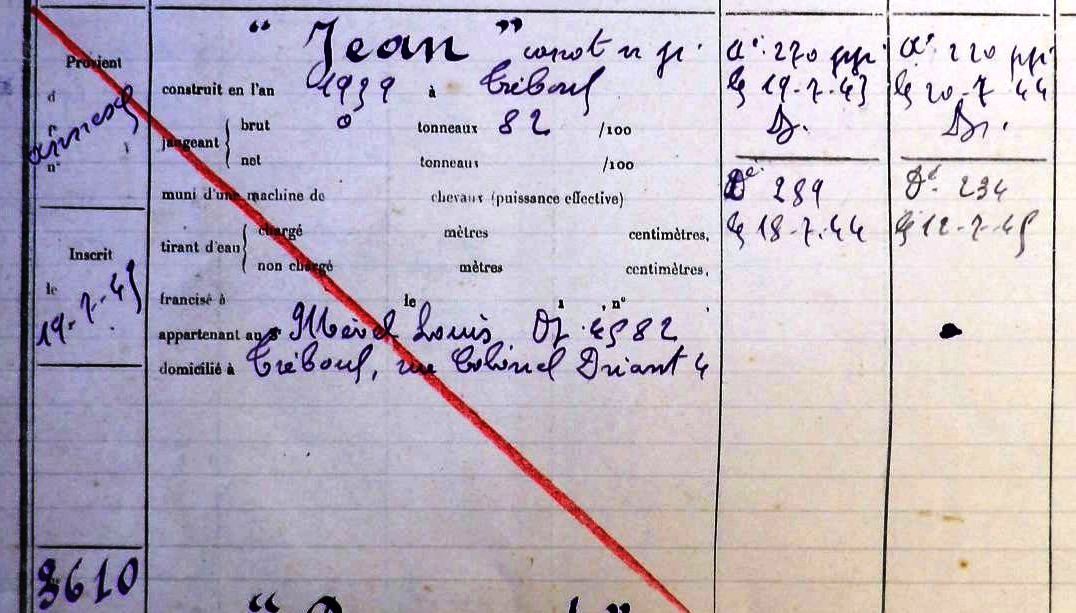 Provient
d
annexe
n°
Inscrit
le
19-7-43
3610
" Jean " canot n p.
construit en l'an 1939 à Tréboul
jaugeant { brut 0 tonneaux 82 /100
net tonneaux /100
muni d'une machine de chevaux (puissance effective)
tirant d'eau { chargé mètres centimètres,
non chargé mètres centimètres,
francisé à le 1 , n°
appartenant au Louis Dz 4582
domicilié à Tréboul, rue Colonel Driant 4
270
le 19-7-43
D° 289
le 18-7-44
220
le 20-7 44
D° 234
le 12-7-45